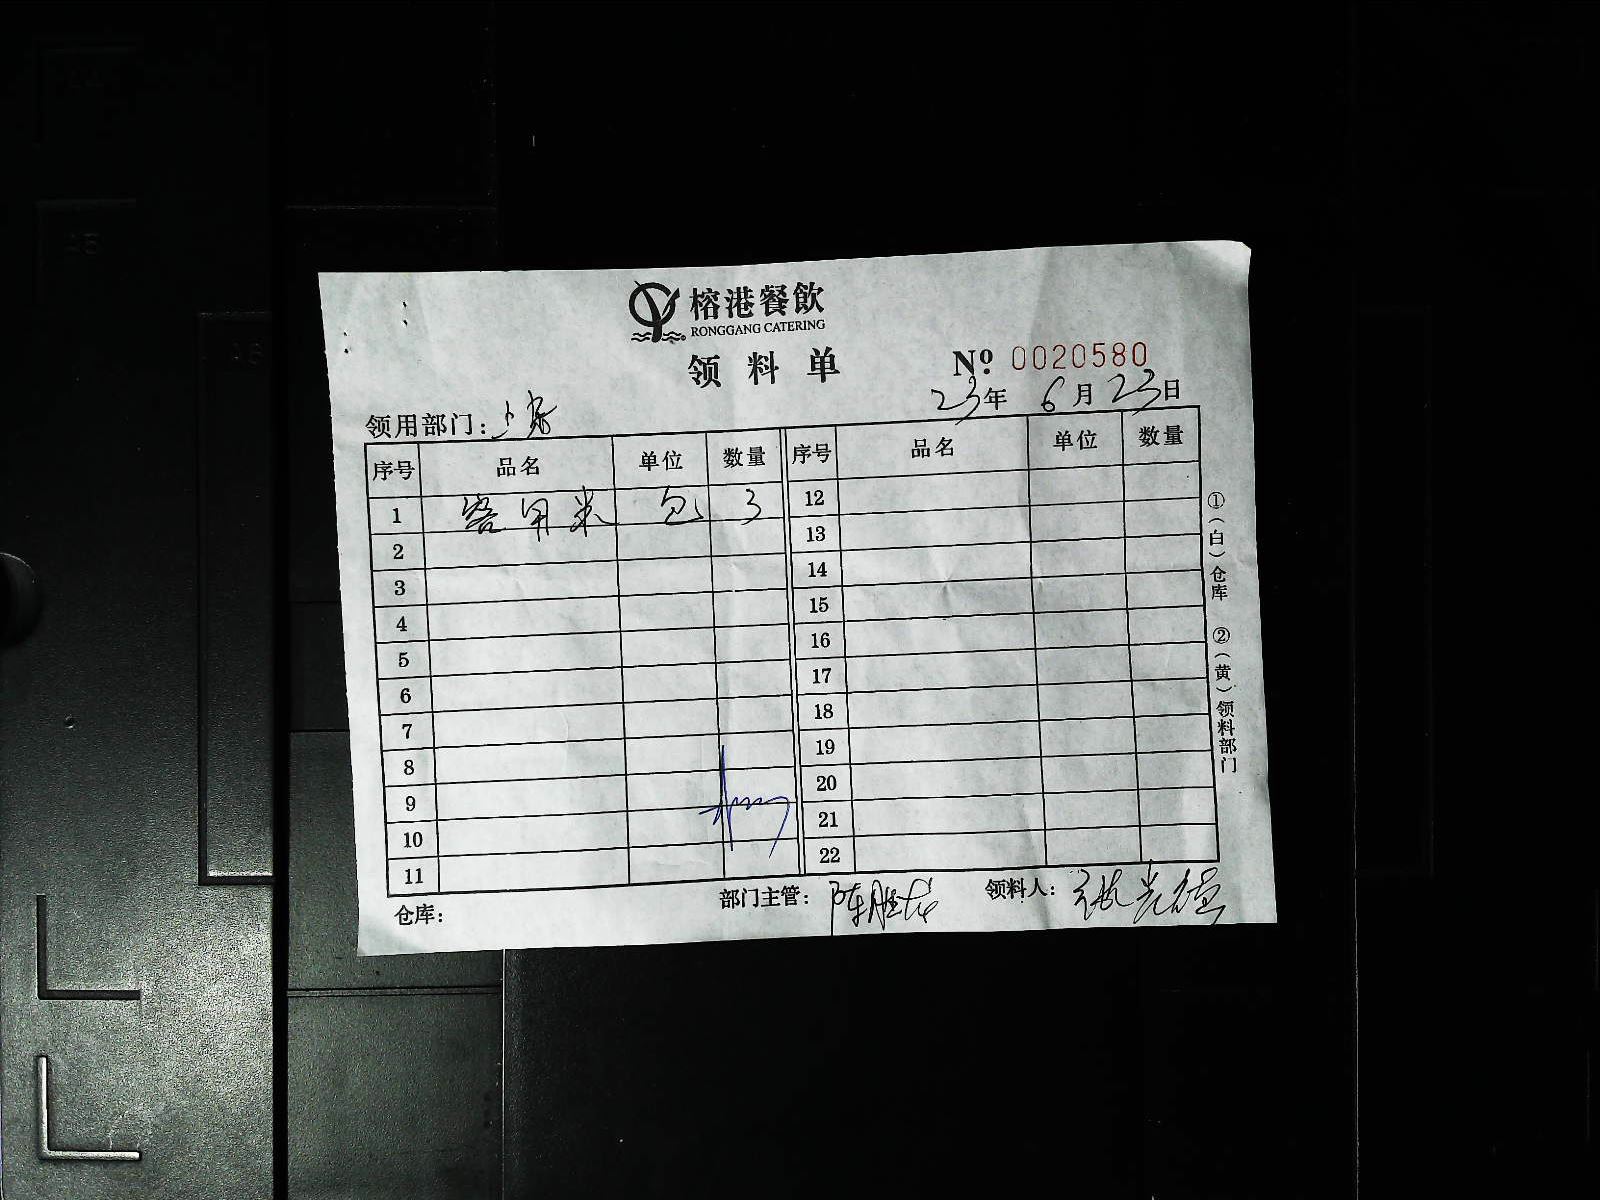 榕港餐飲
RONGGANG CATERING
领料单
Nº 0020580
23年 6月 23日
领用部门:
序号 品名 单位 数量 序号 品名 单位 数量
1 客用米 包 3 12
2 13
3 14
4 15
5 16
6 17
7 18
8 19
9 20
10 21
11 22
①(白)仓库 ②(黄)领料部门
仓库: 部门主管: 陈胜龙 领料人:
A5